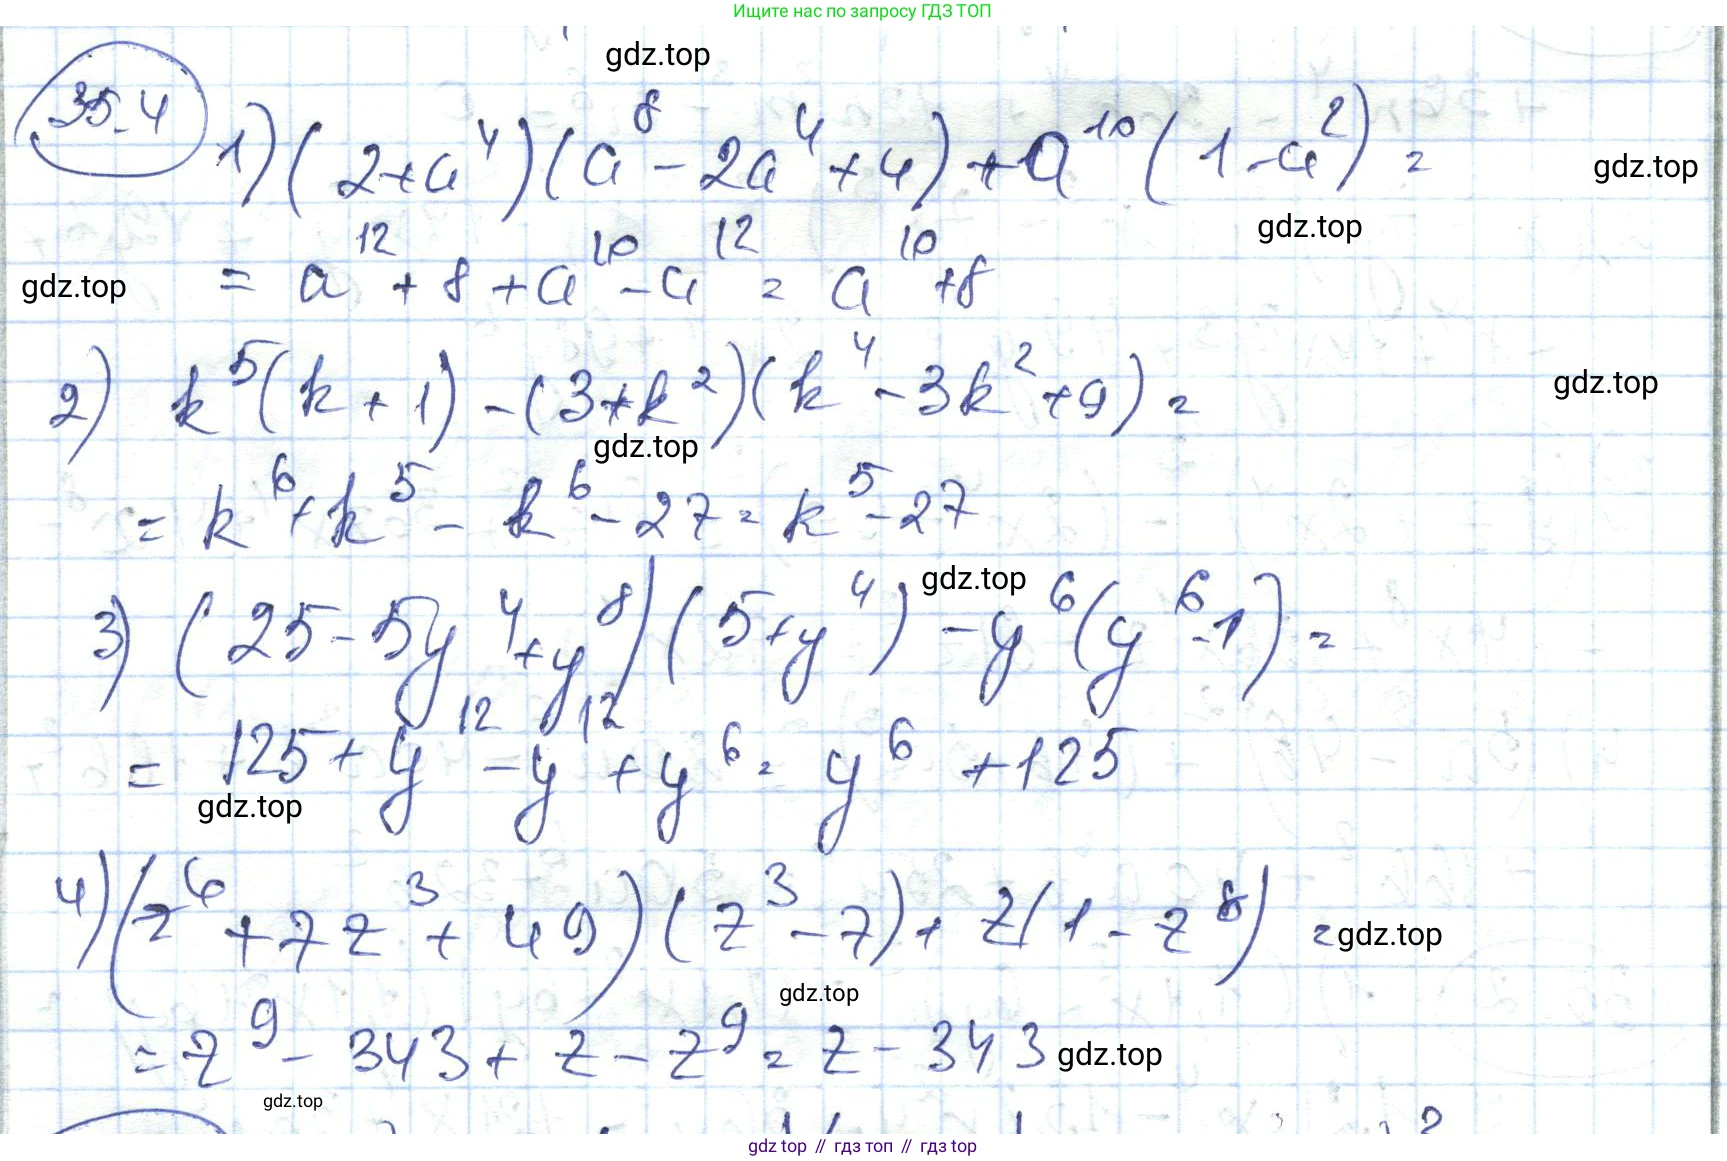 Ищите нас по запросу ГДЗ ТОП
gdz.top
35.4
1) (2+a⁴)(a⁸-2a⁴+4)+a¹⁰(1-a²)=
gdz.top
gdz.top
gdz.top
=a¹²+8+a¹⁰-a¹²=a¹⁰+8
2) k⁵(k+1)-(3+k²)(k⁴-3k²+9)=
gdz.top
gdz.top
=k⁶+k⁵-k⁶-27=k⁵-27
gdz.top
3) (25-5y⁴+y⁸)(5+y⁴)-y⁶(y⁶-1)=
=125+y¹²-y¹²+y⁶=y⁶+125
gdz.top
4) (z⁶+7z³+49)(z³-7)+z(1-z⁸)=
gdz.top
gdz.top
=z⁹-343+z-z⁹=z-343
gdz.top
gdz.top
gdz top // гдз топ // gdz top